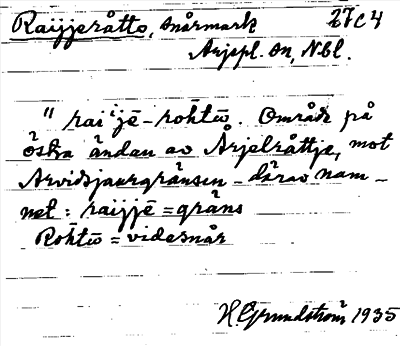 Raijjeråtto, snårmark 27c4
Arjepl. sn, Nbl.
" raiˈjē-rōhtū. Område på
östra ändan av Årjelråttje, mot
Arvidsjaurgränsen - därav nam-
net: raijjē = gräns
Rōhtū = videsnår
H. Grundström 1935